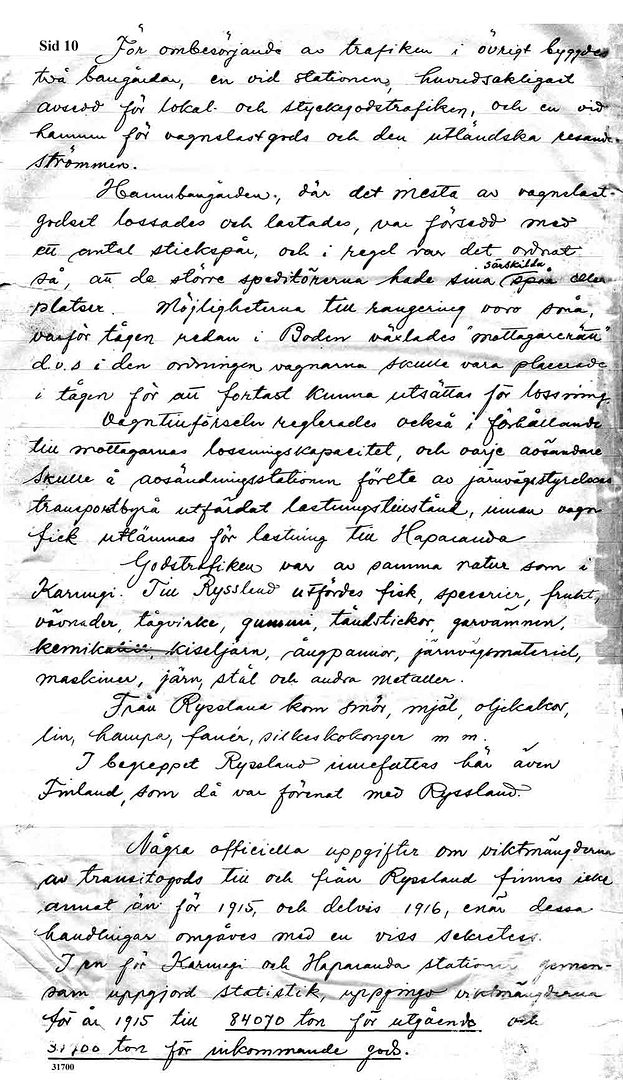 Sid 10 För ombesörjande av trafiken i övrigt byggdes
två bangårdar, en vid stationen, huvudsakligast
avsedd för lokal- och styckegodstrafiken, och en vid
hamnen för vagnslastgods och den utländska resande-
strömmen.
Hamnbangården, där det mesta av vagnslast-
godset lossades och lastades, var försedd med
ett antal stickspår, och i regel var det ordnat
särskilda
så, att de större speditörerna hade sina spår eller
platser. Möjligheterna till rangering voro små,
varför tågen redan i Boden växlades "mottagarerätt"
d.v.s i den ordningen vagnarna skulle vara placerade
i tågen för att fortast kunna utsättas för lossning.
Vagntillförseln reglerades också i förhållande
till mottagarnas lossningskapacitet, och varje avsändare
skulle å avsändningsstationen förete av järnvägsstyrelsens
transportbyrå utfärdat lastningstillstånd, innan vagn
fick utlämnas för lastning till Haparanda
Godstrafiken var av samma natur som i
Karungi. Till Ryssland utfördes fisk, specerier, frukt,
vävnader, tågvirke, gummi, tändstickor, garvämnen,
kemikalier, kiseljärn, ångpannor, järnvägsmateriel,
maskiner, järn, stål och andra metaller.
Från Ryssland kom smör, mjöl, oljekakor,
lin, hampa, fanér, silkeskokonger m m.
I begreppet Ryssland innefattas här även
Finland, som då var förenat med Ryssland.
Några officiella uppgifter om viktmängderna
av transitogods till och från Ryssland finnas icke
annat än för 1915, och delvis 1916, enär dessa
handlingar omgåves med en viss sekretess.
I en för Karungi och Haparanda stationer gemen-
sam uppgjord statistik, uppgingo viktmängderna
för år 1915 till 84070 ton för utgående och
31700 ton för inkommande gods.
31700